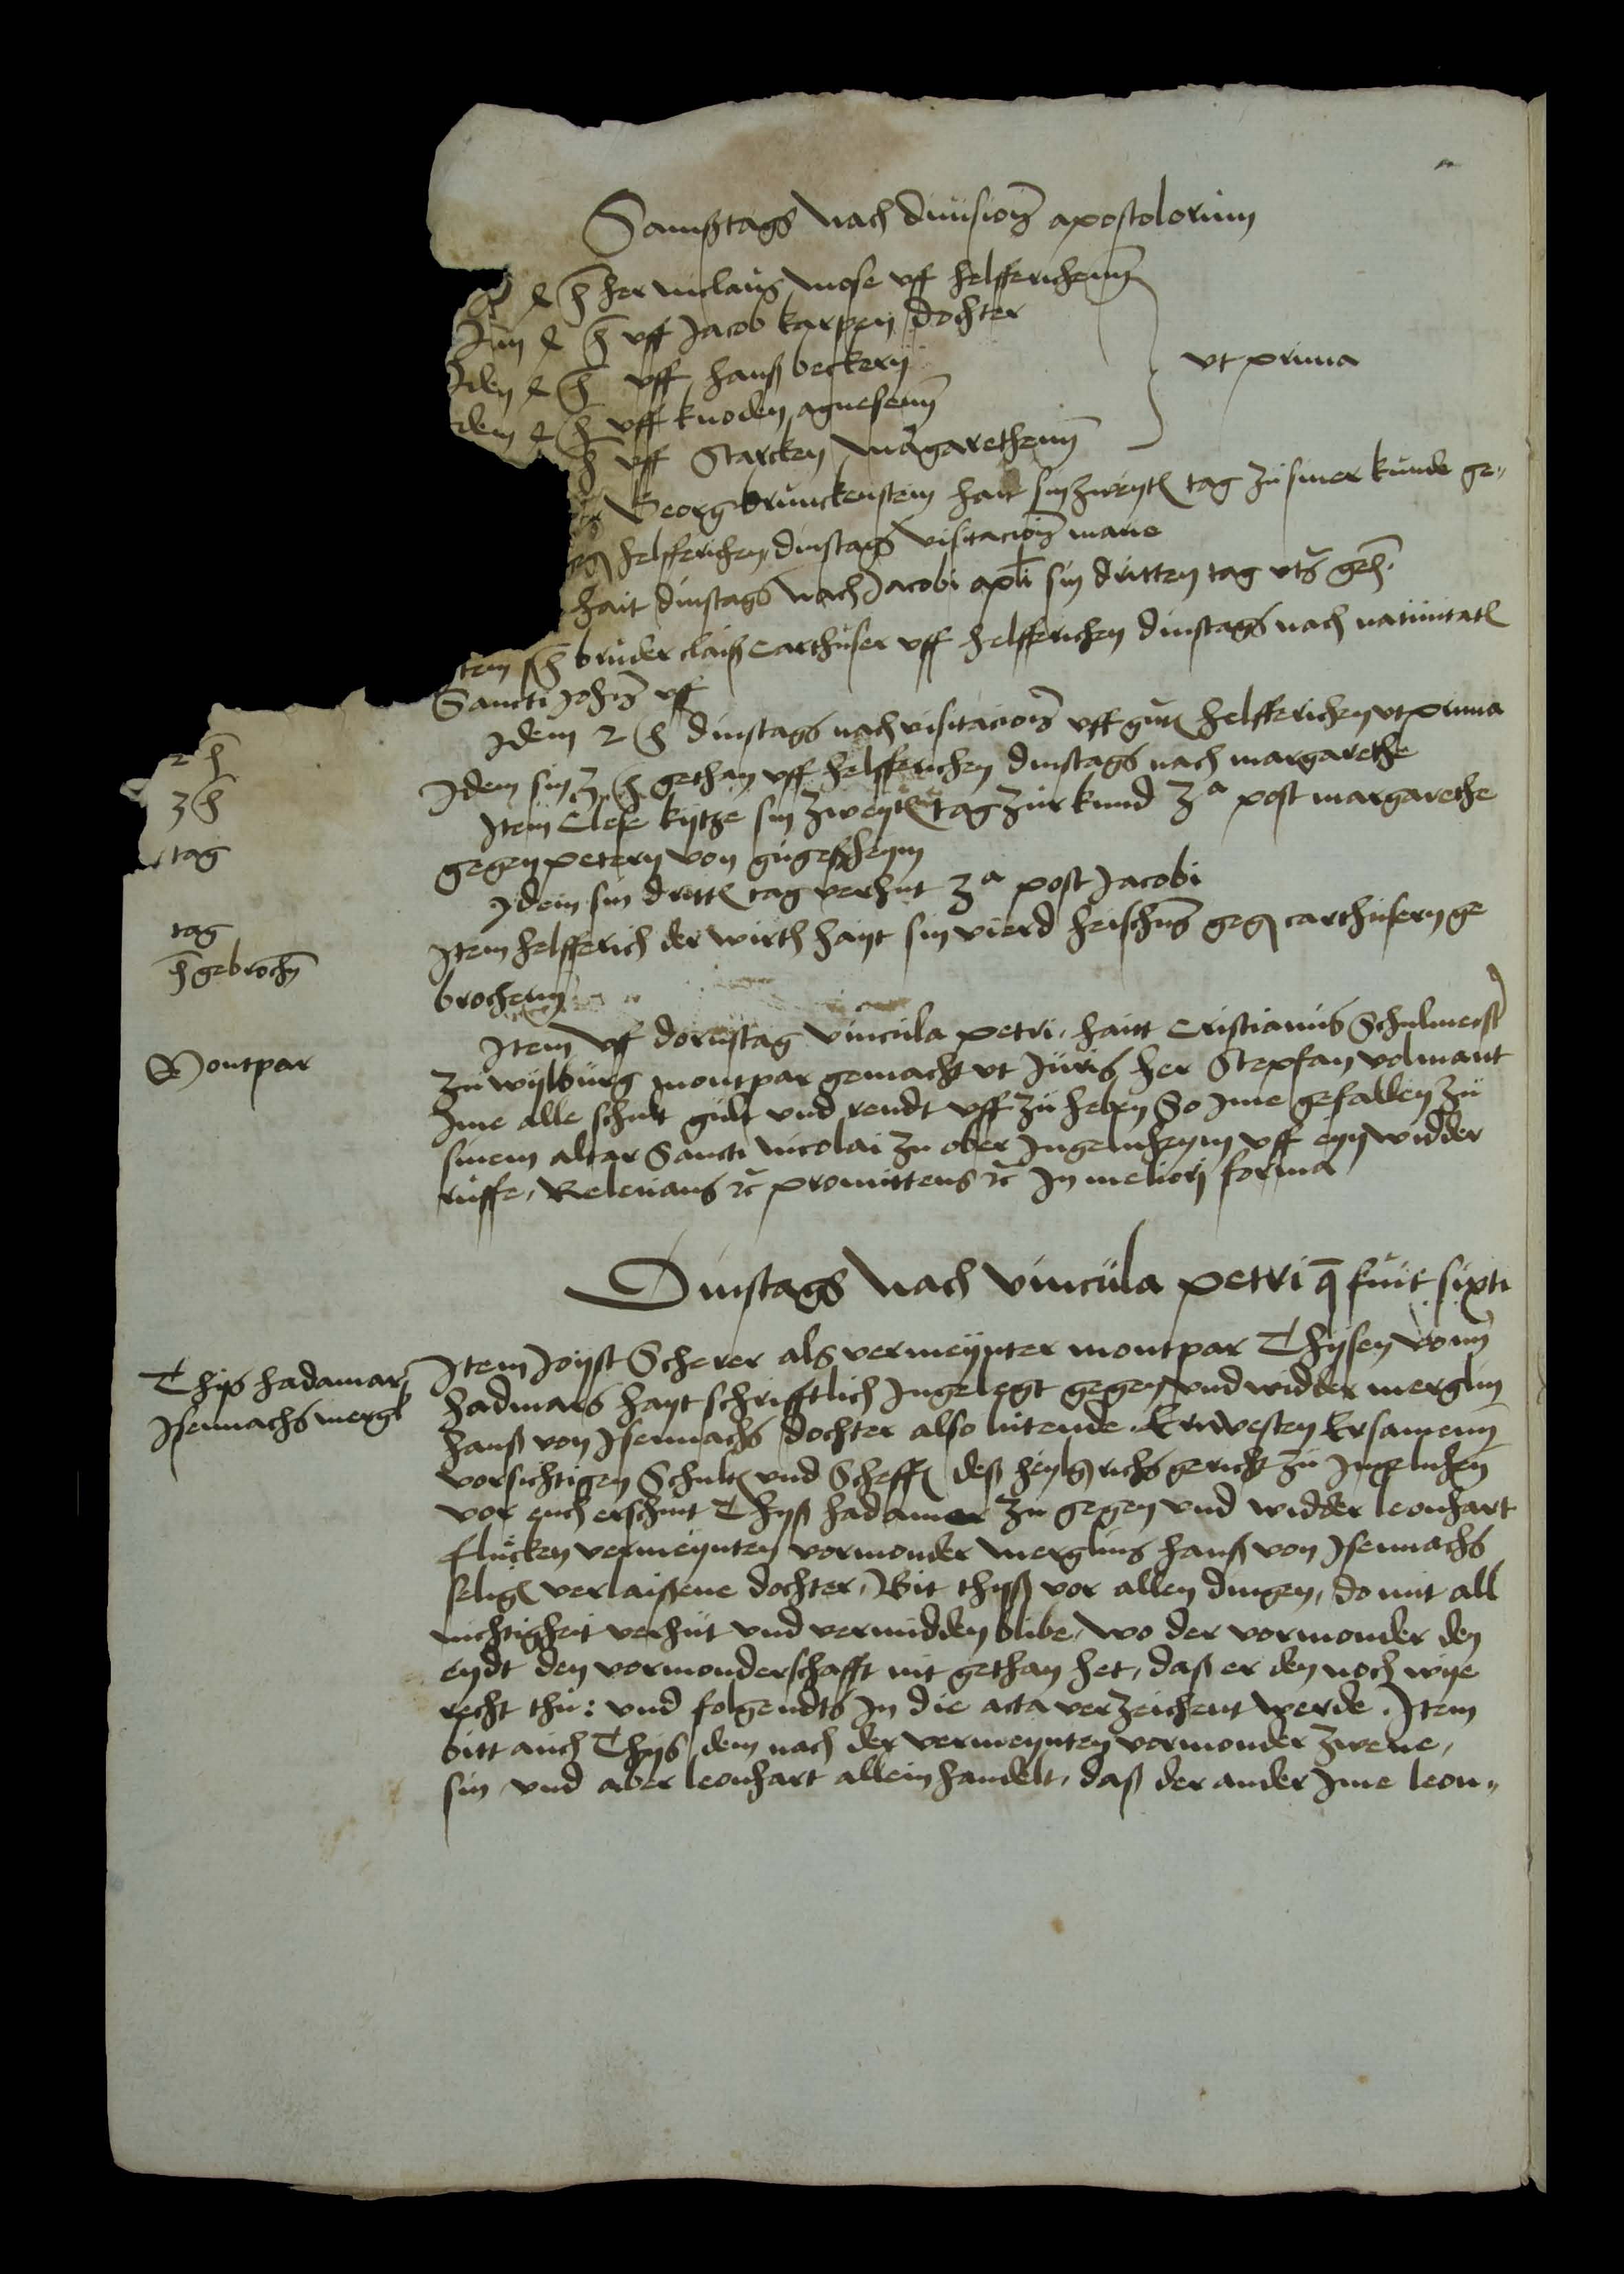 Samßtags Nach diuisioīs apostolorum
4 h her niclaus Mose vff helfferichenn
Jdem 4 h vff Jacob karpen dochter
Jdem 4 h vff hanß beckern
Jdem 4 h vff knoden agnesenn
h vff Starcken Margarethenn
vt prima
Georg bruuckenstein hait sin zweytē tag zu siner kunde ge-
gē helfferichen dinstags visitacioīs marie
hait dinstags nach Jacobi apłi sin dritten tag vts geh.
Item h bruder claiß Carthuser vff helfferichen dinstags nach natiuitatē
Sancti Johīs vff
Jdem 2 h dinstags nach visitacioīs vff gutē helfferichen vt prima
Jdem sin 3 h gethan vff helfferichen dinstags nach margarethe
Item Clese kytze sin zweytē tag zur kund 3ᵃ post margarethe
gegen petern von gugeßheym
Jdem sin drittē tag verhut 3ᵃ post Jacobi
Item helfferich der wirth hayt sin vierd heischūg gegē carthusern ge
brochenn
2 h
3 h
tag
tag
h gebrochn̄
Item vff dornstag vincula petri, haitt Cristianus Schulmeist
zu wylburg montpar gemacht vt Juris her Stepfan volmant
Jme alle schult gult vnd rendt vff zu heben So Jme gefallen zu
sinem altar Sancti Nicolai zu ober Jngelnheym vff eyn widder
ruffe, Releuans ꝛc promittens ꝛc Jn meliorj forma
Montpar
Dinstags Nach vincula petri q̄ fuit sixti
Thys hadamar
Jsennachs mergl
Item Joyst Scherer als vermeynter montpar Thysen vonn
hadmars hayt schrifftlich Jngelegt gegen vnd widder merglin
hanß von Jsennachs dochter also lutende. Ernvesten Ersamenn
vorsichtigen Schultē vnd Scheffē deß heylgē richs gericht zu Jngelnhen
vor euch erschint Thyß hadamer zu gegen vnd widder leonhart
flucken vermeynten vormonder merglins hanß von Jsennachs
seligē verlaißene dochter, Bit thyß vor allen dingen, do mit all
nichtigheit verhut vnd vermidden blibe, wo der vormonder den
eydt den vormonderschafft nit gethan het, daß er den noch wye
recht thu: vnd folgendts Jn die acta verzeichent werde. Item
bitt auch Thys, dem nach der vermeynten vormonder zwene,
sin vnd aber leonhart allein handelt, daß der ander Jme leon-